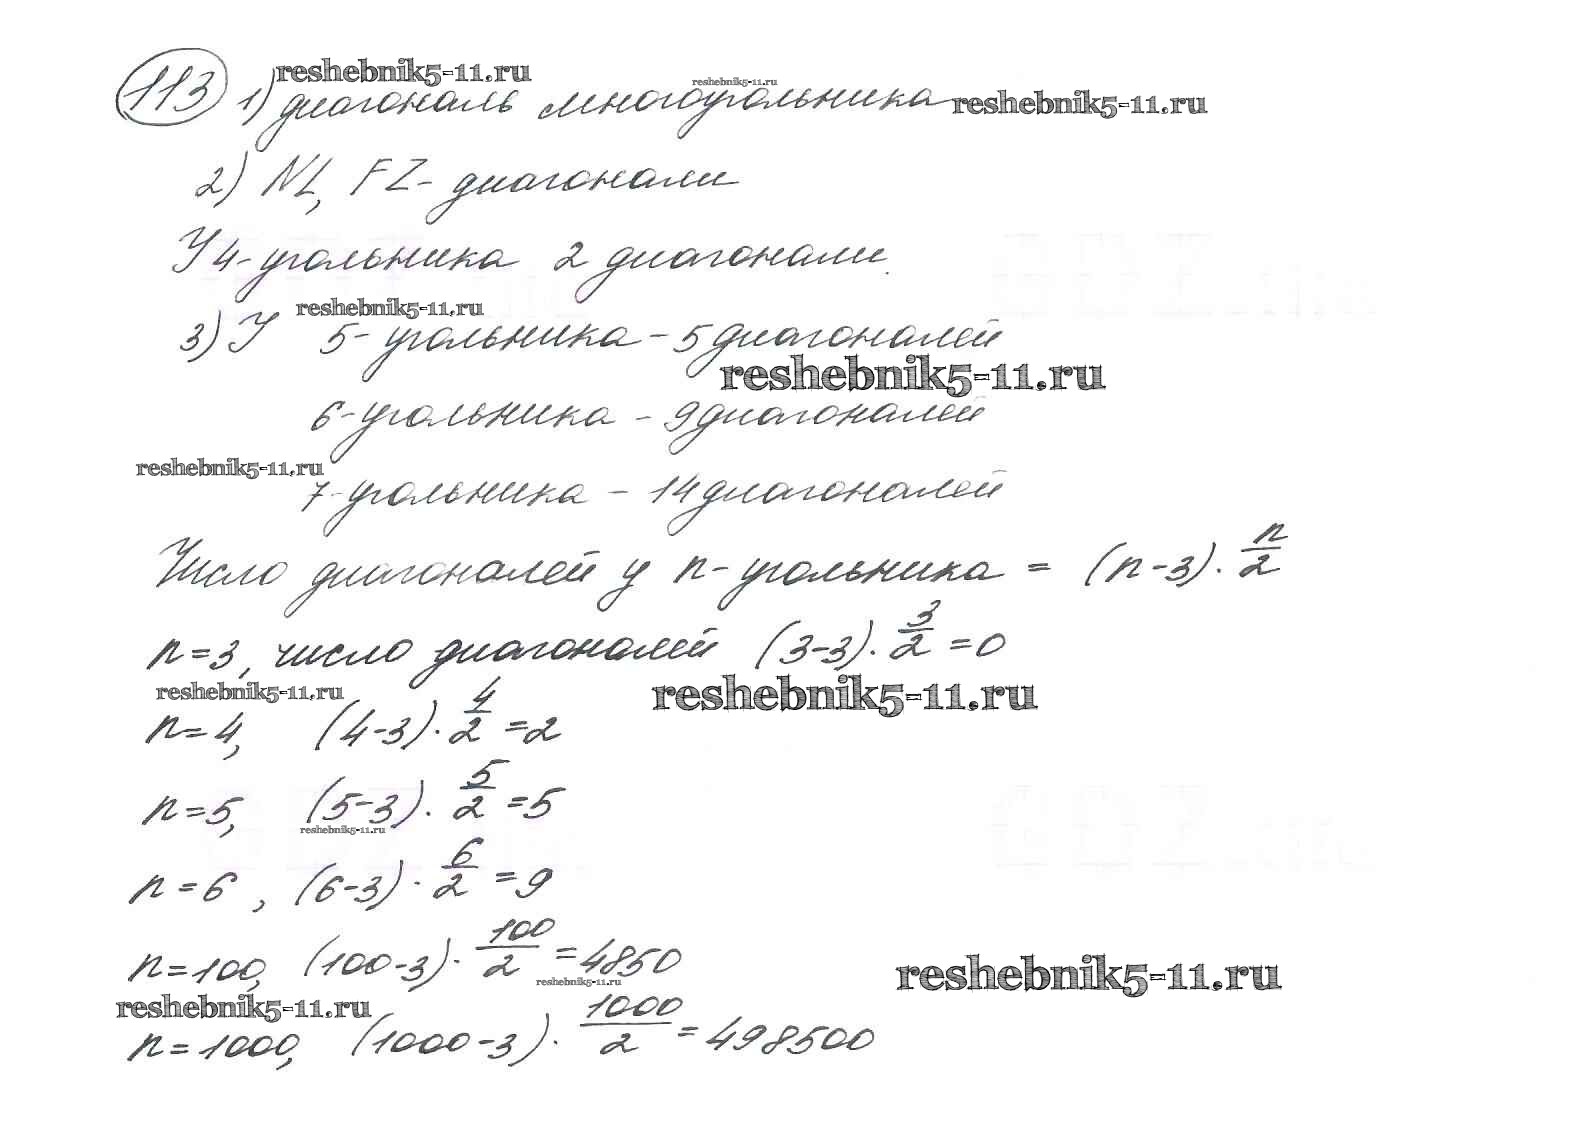 113 reshebnik5-11.ru reshebnik5-11.ru
1) диагональ многоугольника reshebnik5-11.ru
2) NL, FZ - диагонали
У 4-угольника 2 диагонали.
reshebnik5-11.ru
3) У 5-угольника - 5 диагоналей
reshebnik5-11.ru
6-угольника - 9 диагоналей
reshebnik5-11.ru
7-угольника - 14 диагоналей
Число диагоналей у n-угольника = (n-3) · n/2
n=3, число диагоналей (3-3) · 3/2 = 0
reshebnik5-11.ru reshebnik5-11.ru
n=4, (4-3) · 4/2 = 2
n=5, (5-3) · 5/2 = 5
reshebnik5-11.ru
n=6, (6-3) · 6/2 = 9
n=100, (100-3) · 100/2 = 4850
reshebnik5-11.ru reshebnik5-11.ru
reshebnik5-11.ru
n=1000, (1000-3) · 1000/2 = 498500